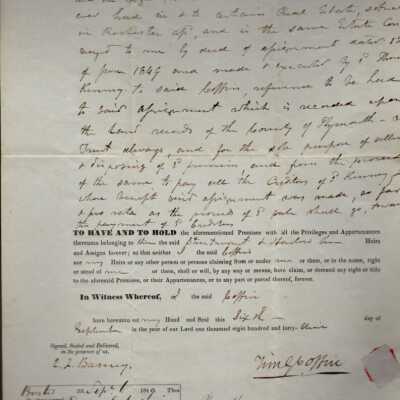 ever had in & to certain Real Estate, situate
in Rochester aft, and is the same Estate Con
veyed to me by deed of assignment dated 12
of June 1849 and made & executed by S
Kinney to said Coffin, reference to be had
to said assignment which is recorded upon
the Land records of the County of Plymouth - in
Trust always, and for the sole purpose of selling
& disposing of sd premises and from the proceeds
of the same to pay all the Creditors of sd Kinney
whose benefit said assignment was made, so far
& pro rata as the proceeds of sd sale shall go, towards
the payment of sd Creditors
TO HAVE AND TO HOLD the aforementioned Premises with all the Privileges and Appurtenances
thereunto belonging to the said Heirs
and Assigns forever; so that neither I the said Coffin
nor my Heirs or any other person or persons claiming from or under me or them, or in the name, right
or stead of me or them, shall or will, by any way or means, have, claim, or demand any right or title
to the aforesaid Premises, or their Appurtenances, or to any part or parcel thereof, forever.
In Witness Whereof, I the said Coffin
have hereunto set my Hand and Seal this Sixth day of
September in the year of our Lord one thousand eight hundred and forty-nine
Signed, Sealed and Delivered,
in the presence of us,
E. L. Barney
Tim G Coffin
Sept 6 1849. Then